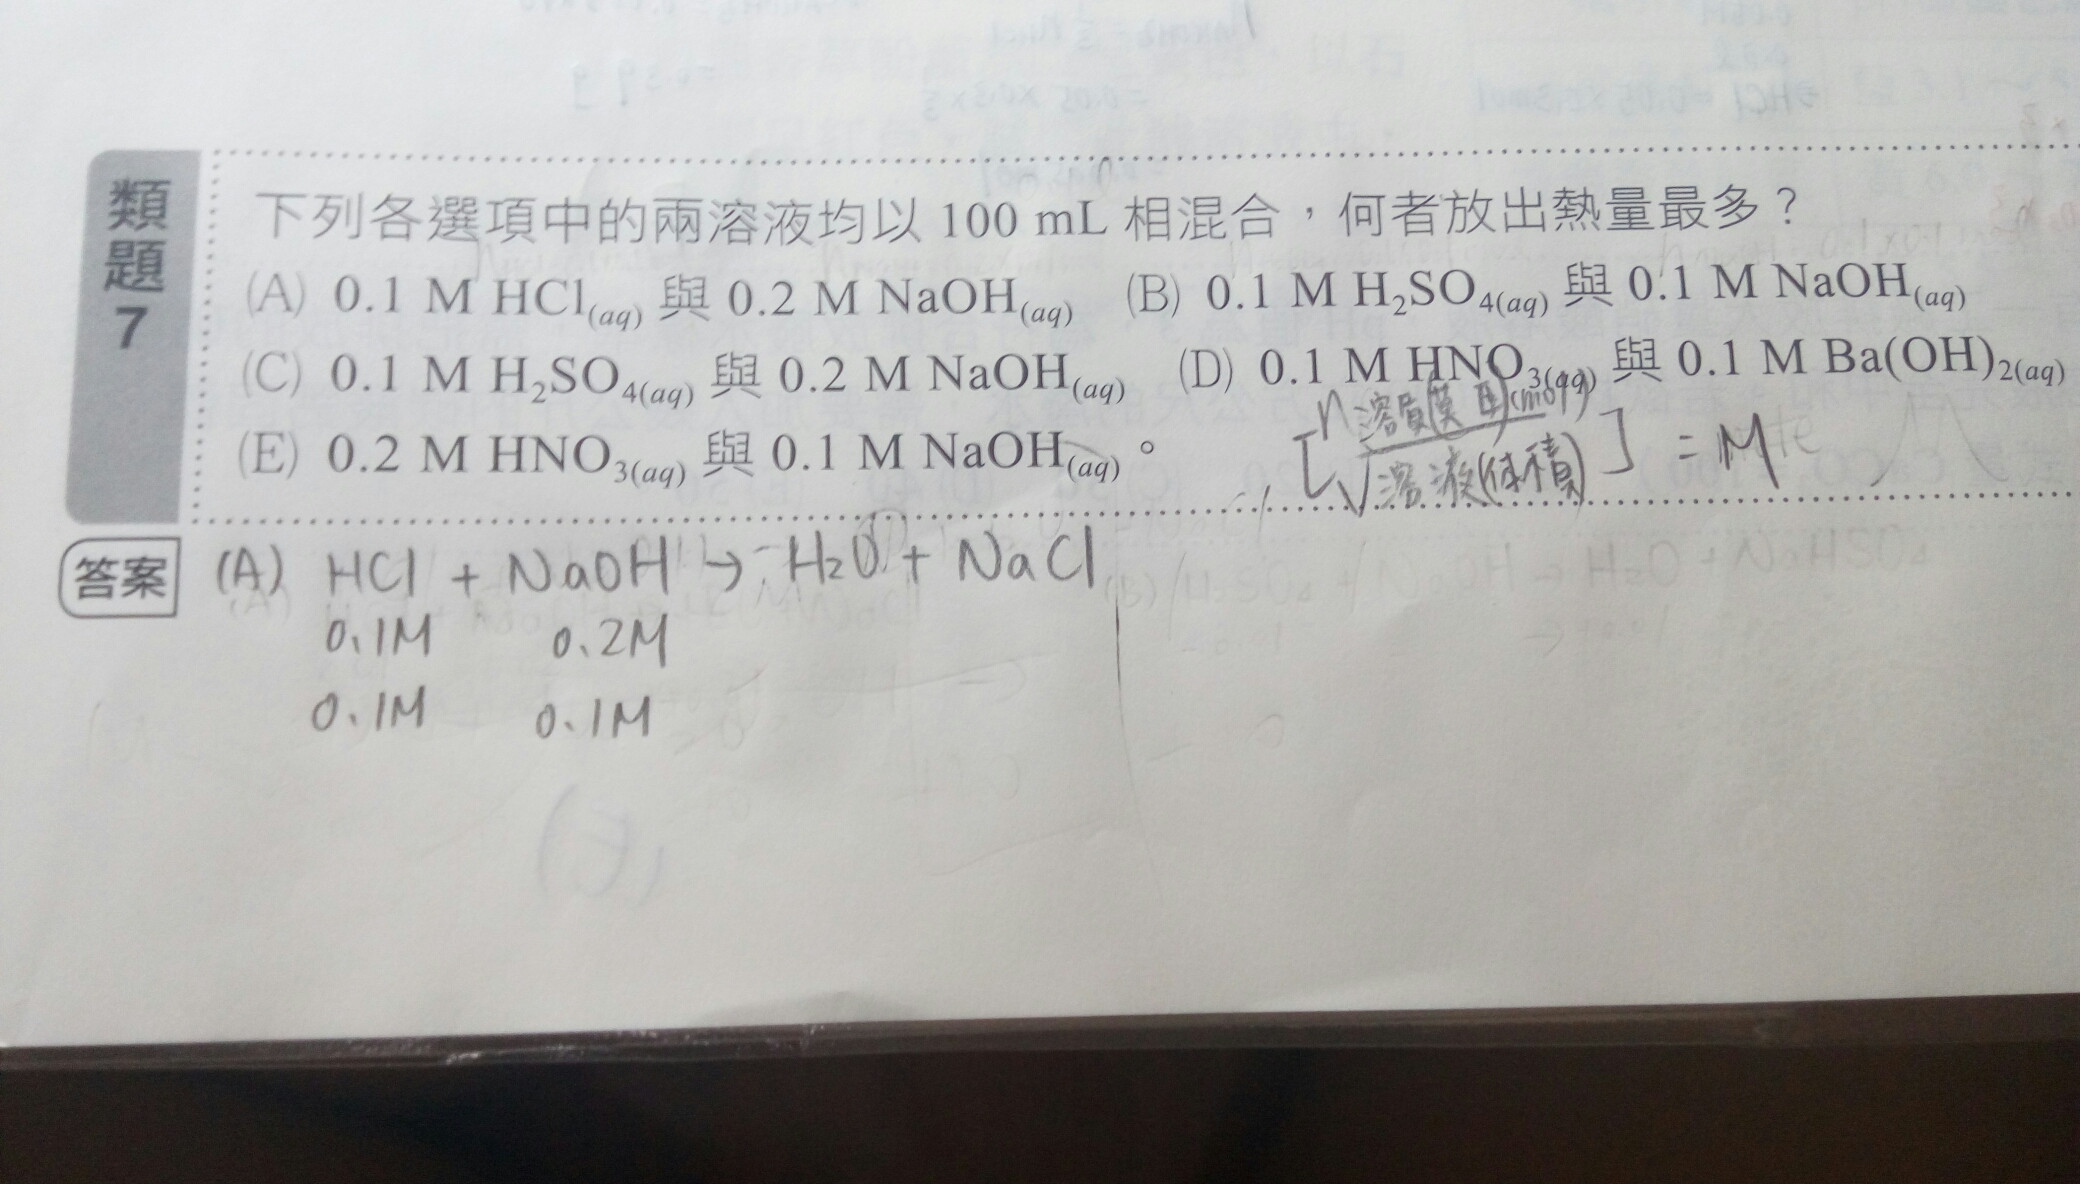 類題7
下列各選項中的兩溶液均以 100 mL 相混合，何者放出熱量最多？
(A) 0.1 M HCl(aq) 與 0.2 M NaOH(aq) (B) 0.1 M H₂SO₄(aq) 與 0.1 M NaOH(aq)
(C) 0.1 M H₂SO₄(aq) 與 0.2 M NaOH(aq) (D) 0.1 M HNO₃(aq) 與 0.1 M Ba(OH)₂(aq)
(E) 0.2 M HNO₃(aq) 與 0.1 M NaOH(aq)。
[n 溶質(莫耳)(mol)
V 溶液(体積)] = M
答案
(A) HCl + NaOH → H₂O + NaCl
0.1M 0.2M
0.1M 0.1M